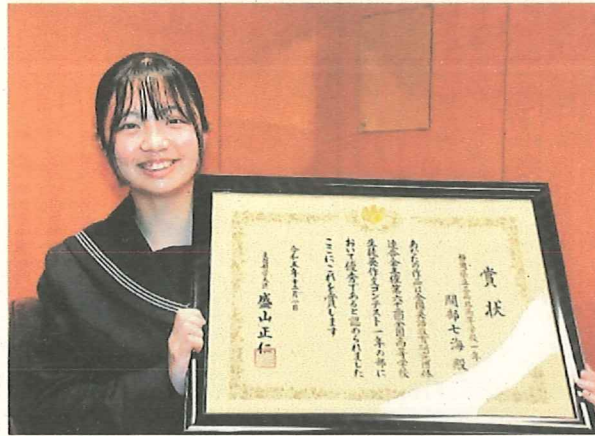 賞状
高等学校一年
間部七海殿
あなたの作品は全国英語教育研究団体
連合会主催第六十二回全国高等学校
生徒英作文コンテスト一年の部に
おいて優秀であると認められました
ここにこれを賞します
令和五年十二月一日
文部科学大臣 盛山正仁